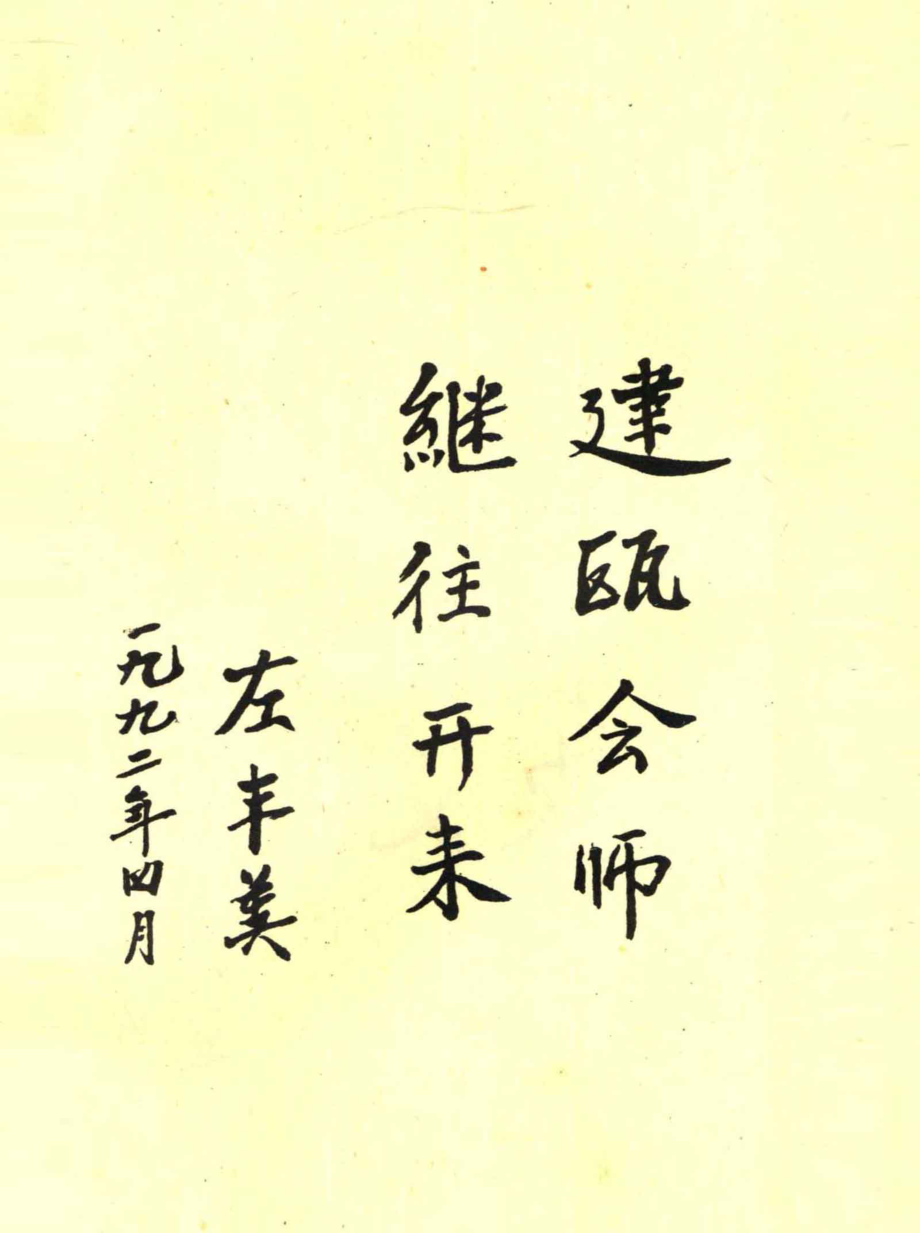 建瓯会师
継往开来
左丰美
一九九二年四月